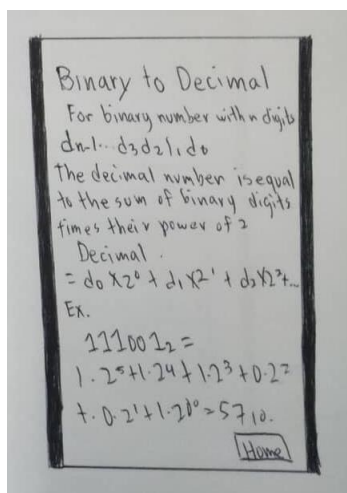 Binary to Decimal
For binary number with n digits
dn-1... d3 d2 1, d0
The decimal number is equal
to the sum of binary digits
times their power of 2
Decimal.
= d0 X 2⁰ + d1 X 2¹ + d2 X 2²+...
Ex.
111001₂ =
1.2⁵+1.2⁴+1.2³+0.2²
+.0.2¹+1.2⁰=57₁₀.
Home